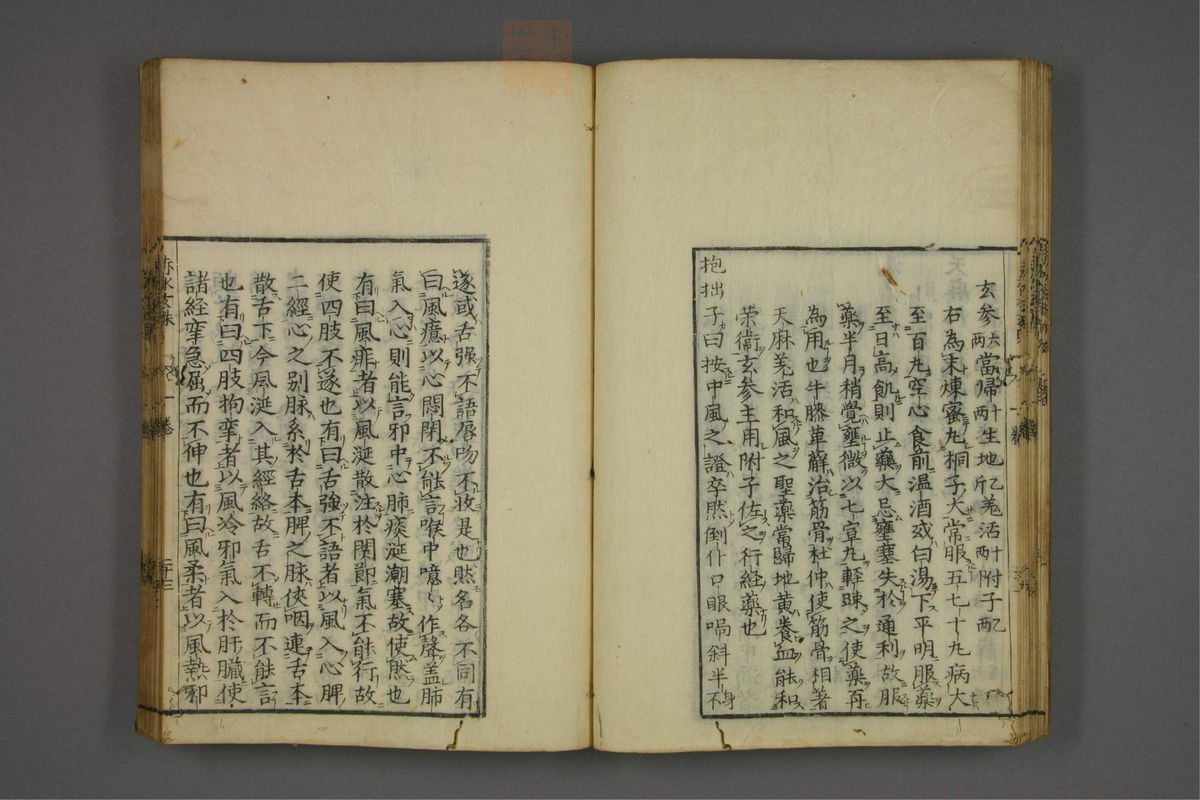 玄参六兩當歸十兩生地一斤羌活十兩附子一兩
右為末煉蜜丸桐子大常服五七十丸病大
至百丸空心食前温酒或白湯下平明服藥
至日高飢則止藥大忌壅塞失於通利故服
藥半月稍覺壅微以七宣丸輕踈之使藥再
為用也牛膝萆薢治筋骨杜仲使筋骨相著
天麻羌活和風之聖藥當歸地黄養血能和
榮衛玄参主用附子佐之行經藥也
抱拙子曰按中風之證卒然倒仆口眼喎斜半身不
遂或舌强不語唇吻不收是也然名各不同有
曰風癔以心悶閉不能言喉中噫々作聲盖肺
氣入心則能言邪中心肺痰涎潮塞故使然也
有曰風痱者以風涎散注於関節氣不能行故
使四肢不遂也有曰舌強不語者以風入心脾
二經心之别脉系於舌本脾之脉侠咽連舌本
散舌下今風涎入其經絡故舌不轉而不能言
也有曰四肢拘攣者以風冷邪氣入於肝臟使
諸經攣急屈而不伸也有曰風柔者以風熱邪
赤水玄珠 一卷 二十三